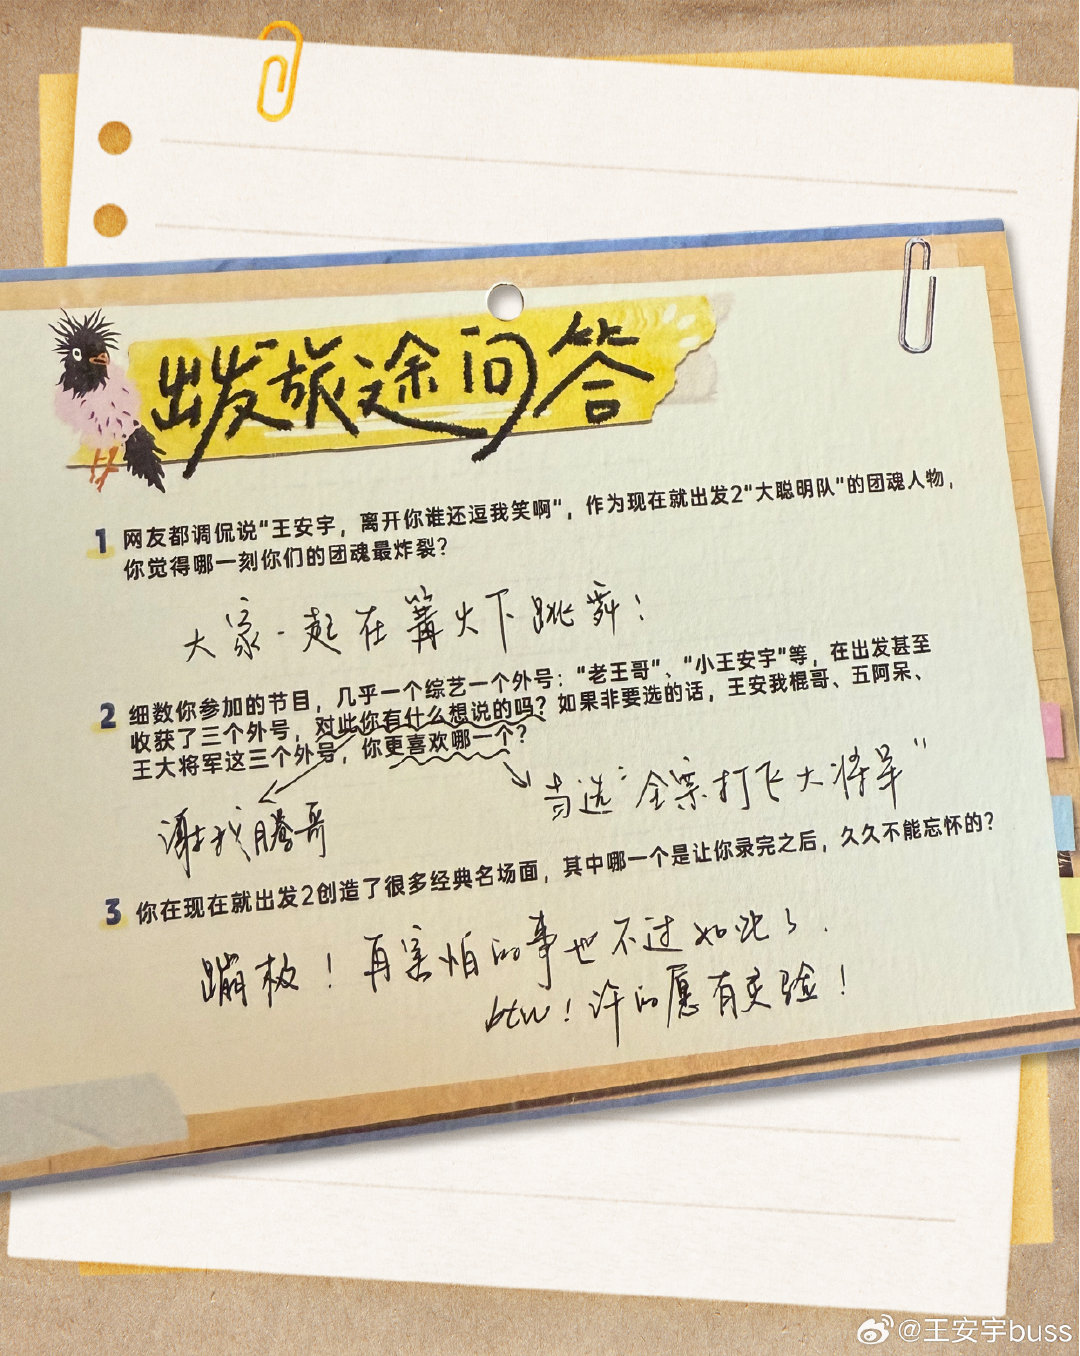 出发旅途问答
1 网友都调侃说“王安宇，离开你谁还逗我笑啊”，作为现在就出发2“大聪明队”的团魂人物，
你觉得哪一刻你们的团魂最炸裂？
大家一起在篝火下跳舞！
2 细数你参加的节目，几乎一个综艺一个外号：“老王哥”、“小王安宇”等，在出发甚至
收获了三个外号，对此你有什么想说的吗？如果非要选的话，王安我棍哥、五阿呆、
王大将军这三个外号，你更喜欢哪一个？
谢我腾哥
当选“全寨打飞大将军”
3 你在现在就出发2创造了很多经典名场面，其中哪一个是让你录完之后，久久不能忘怀的？
蹦极！再害怕的事也不过如此了.
btw！许的愿有灵验！
@王安宇buss